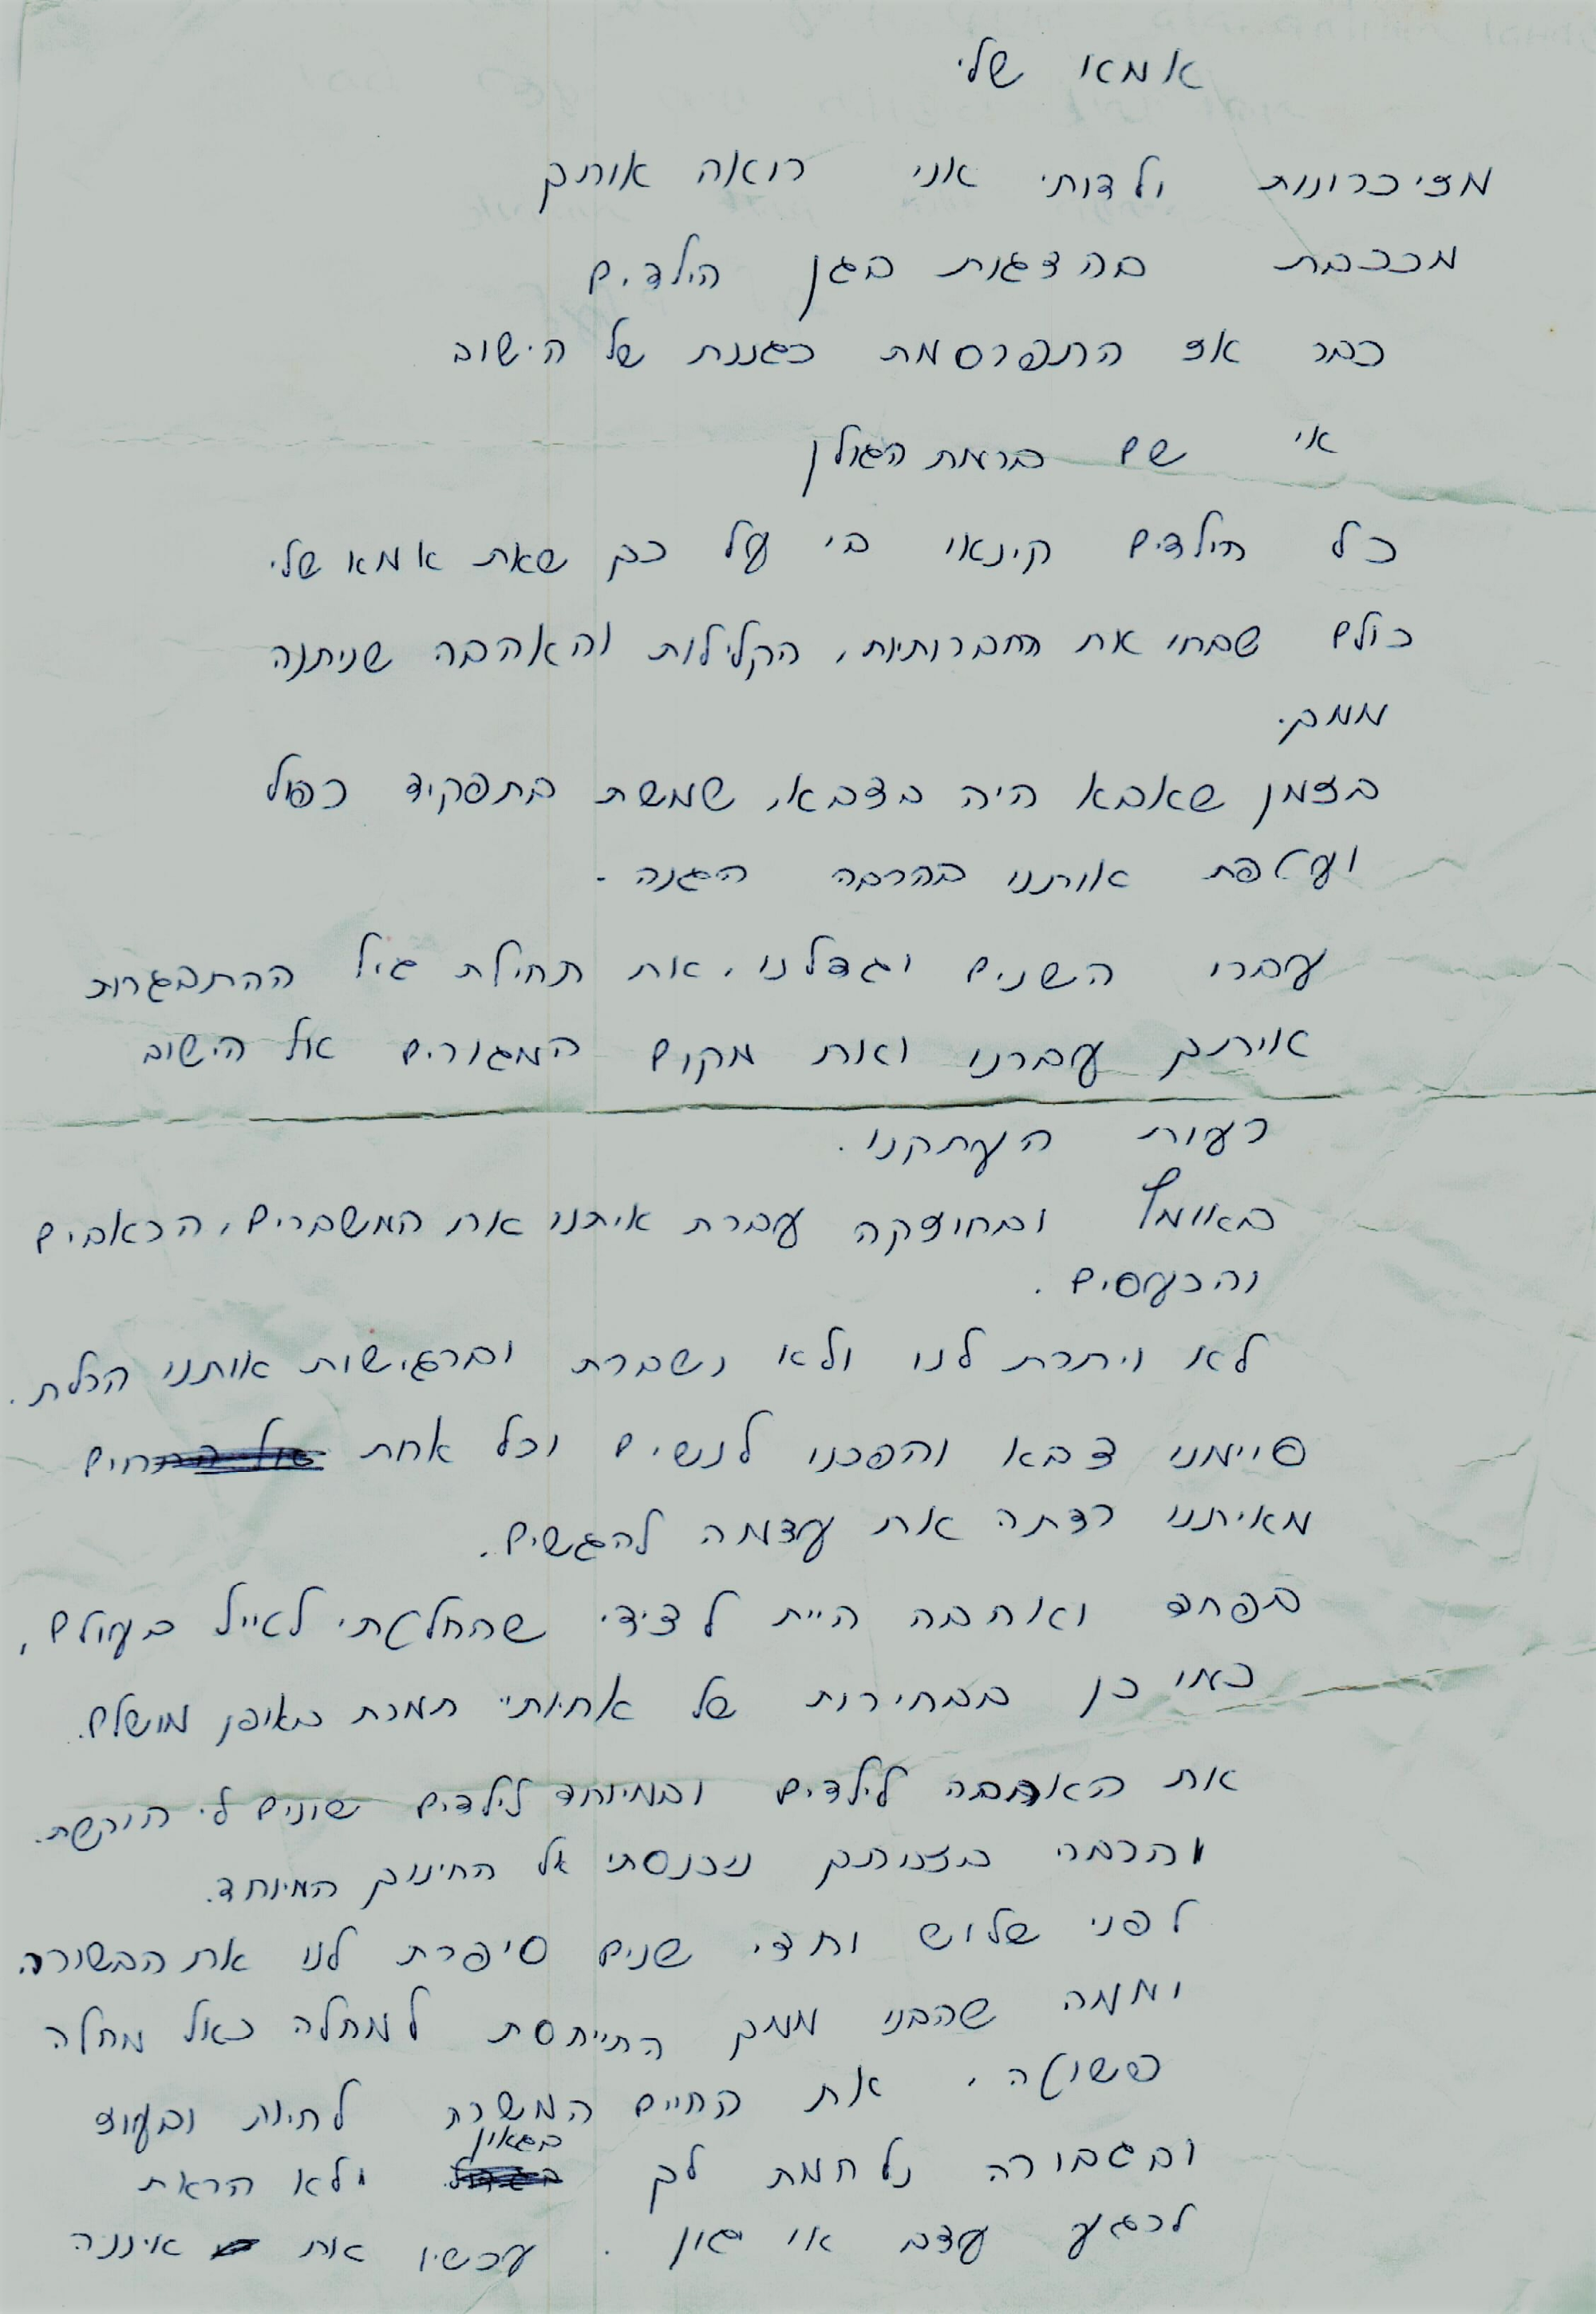 אמא שלי
מזיכרונות ילדותי אני רואה אותך
מככבת בהצגות בגן הילדים
כבר אז התפרסמת כגננת של הישוב
אי שם ברמת הגולן
כל הילדים קינאו בי על כך שאת אמא שלי
כולם שבחו את החברותיות, הקלילות והאהבה שניתנה
ממך.
בזמן שאבא היה בצבא, שמשת בתפקיד כפול
ועטפת אותנו בהרבה הגנה.
עברו השנים וגדלנו, את תחילת גיל ההתבגרות
איתך עברנו ואת מקום המגורים אל הישוב
רעות העתקנו.
באומץ ובחוזקה עברת איתנו את המשברים, הכאבים
והכעסים.
לא ויתרת לנו ולא נשברת וברגישות אותנו הכלת.
סיימנו צבא והפכנו לנשים וכל אחת
מאיתנו רצתה את עצמה להגשים.
בפחד ואהבה היית לצידי שהחלטתי לטייל בעולם,
כמו כן בבחירות של אחיותיי תמכת באופן מושלם.
את האהבה לילדים ובמיוחד לילדים שונים לי הורשת.
והרבה בזכותך נכנסתי אל החינוך המיוחד.
לפני שלוש וחצי שנים סיפרת לנו את הבשורה
וממה שהבנו ממך התייחסת למחלה כאל מחלה
פשוטה, את החיים המשכת לחיות ובעוז
ובגבורה נלחמת לך בגאון ולא הראת
לרגע עצב או יגון. עכשיו את איננה